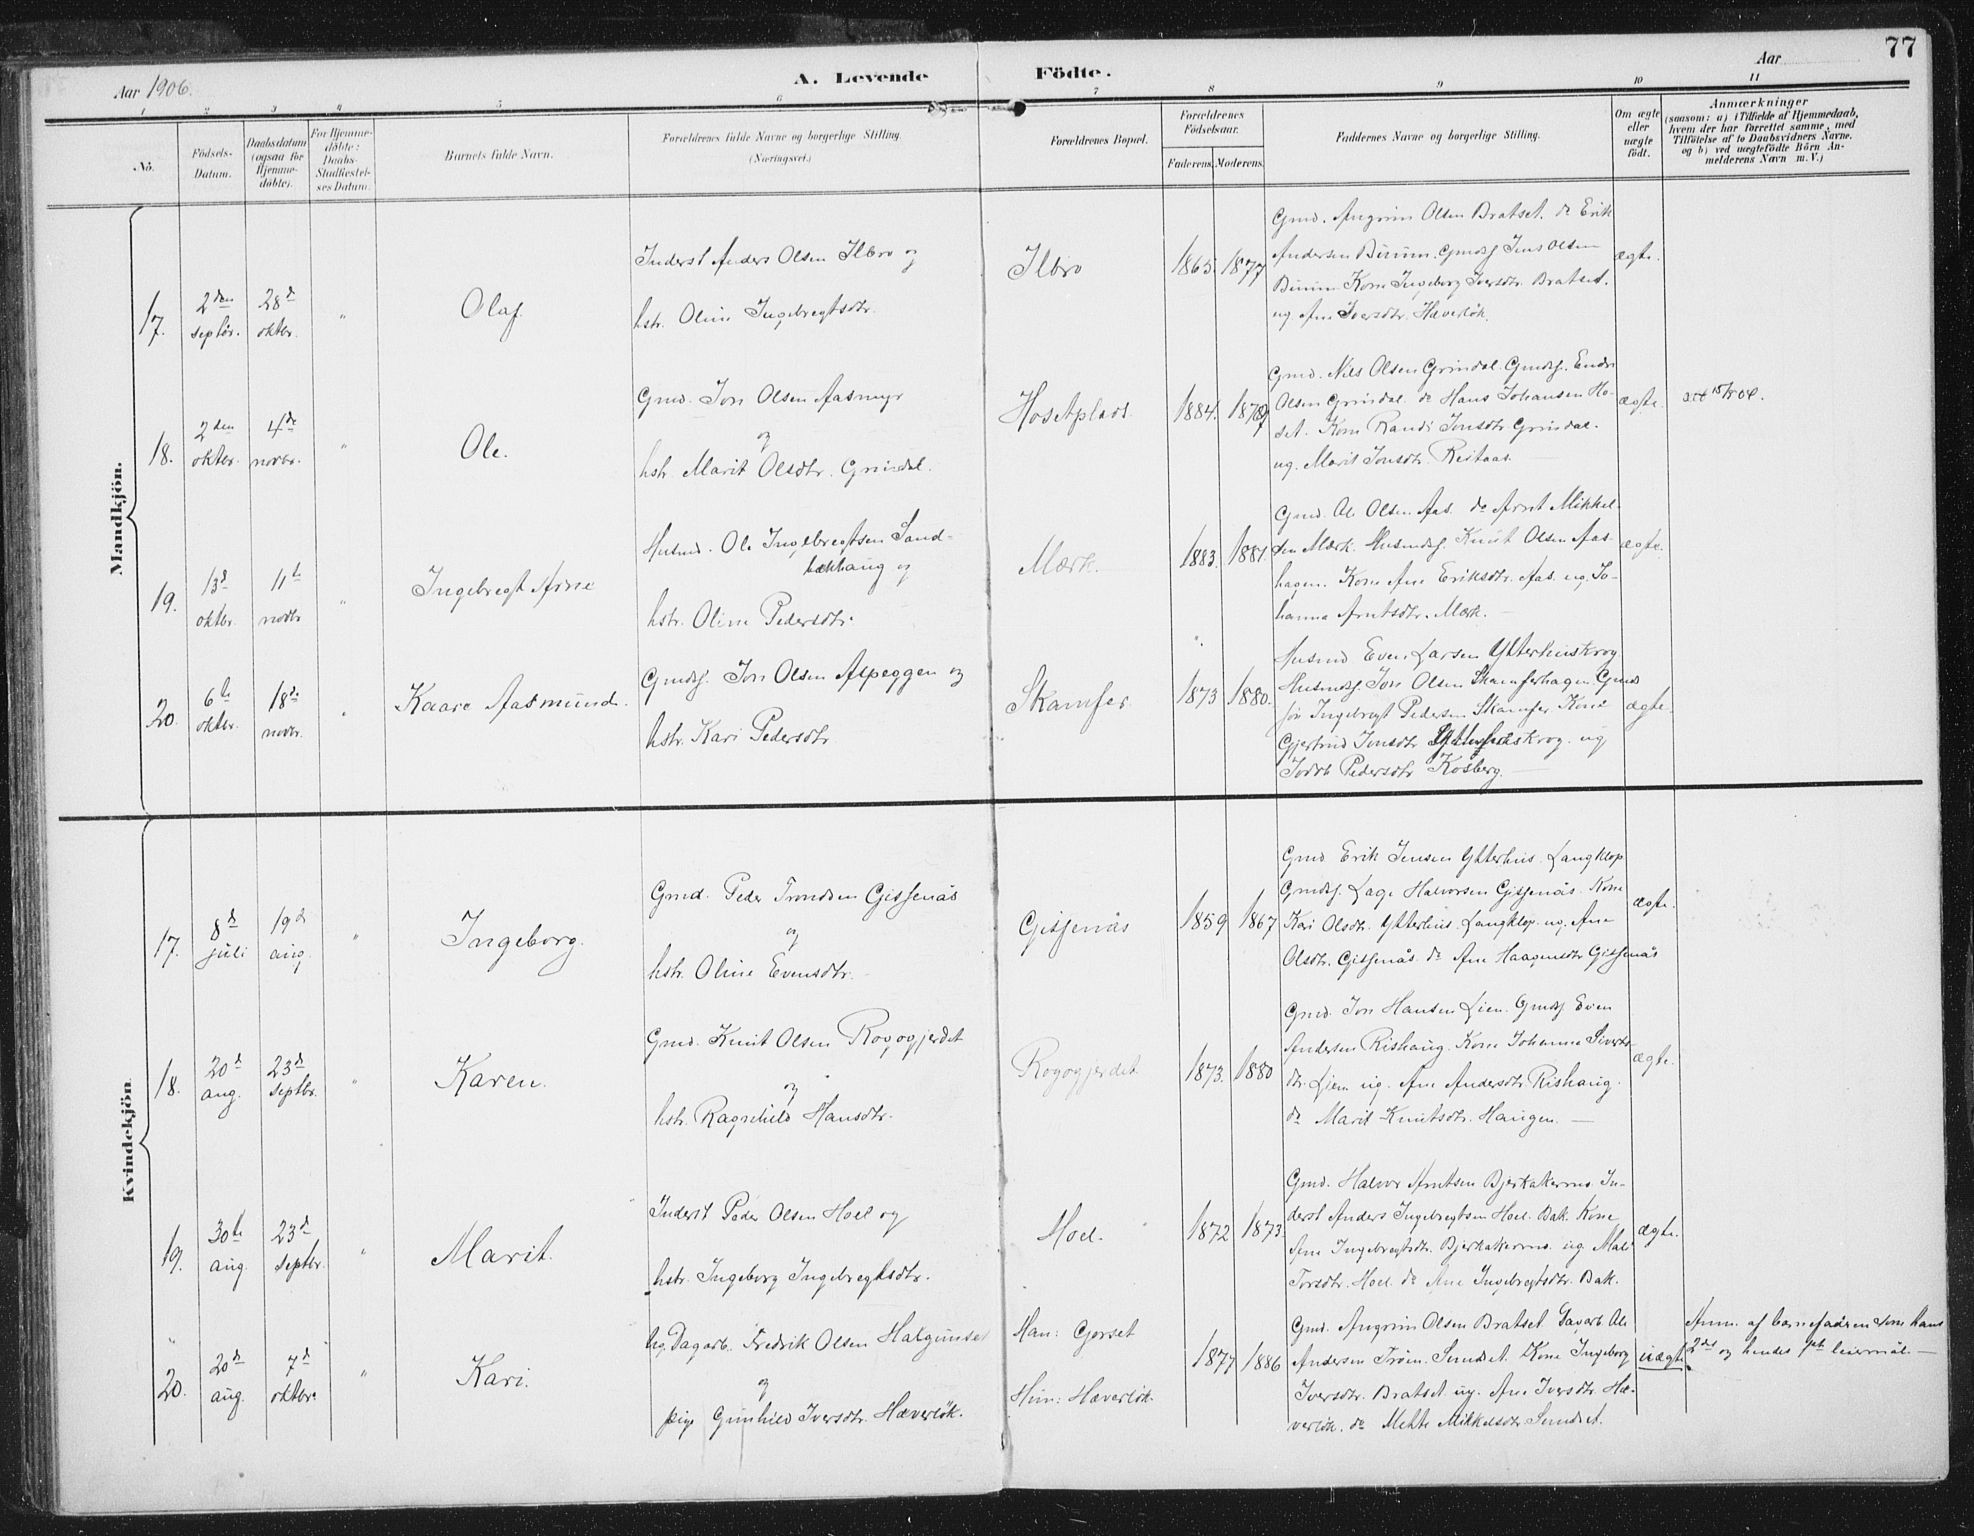 77
Aar 1906.
A. Levende Födte.
Aar
1 2 3 4 5 6 7 8 9 10 11
No.
Födsels-Datum.
Daabsdatum (ogsaa for Hjemme-döbte).
For Hjemme-döbte: Daabs-Stadfæstel-ses Datum.
Barnets fulde Navn.
Forældrenes fulde Navne og borgerlige Stilling.
(Næringsvei.)
Forældrenes Bopæl.
Forældrenes Födselsaar.
Faderens. Moderens.
Faddernes Navne og borgerlige Stilling.
Om ægte eller uægte födt.
Anmærkninger
(saasom: a) i Tilfælde af Hjemmedaab,
hvem der har forrettet samme, med
Tilföielse af to Daabsvidners Navne,
og b) ved uægtefödte Börn An-
melderens Navn m. V.)
Mandkjön.
17. 2den septbr. 28d oktbr. " Olaf.
Inderst Anders Olsen Ilbro og
hstr. Oline Ingebregtsdtr.
Ilbro 1865. 1877
Gmd. Angrim Olsen Bratset. do Erik
Andersen Gmdsf Jens Olsen
Kone Ingeborg Iversdtr. Bratset.
ug. Ane Iversdtr. Hæverlök.
ægte.
18. 2den oktbr. 4de novbr. " Ole.
Gmd. Jon Olsen Aasmyr
og
hstr. Marit Olsdtr. Grindal.
Hosetplads. 1884.
Gmd. Nils Olsen Grindal. Gmdsf. Endre
Olsen Grindal. do Hans Johansen Ho-
set. Kone Randi Jonsdtr. Grindal.
ug. Marit Jonsdtr. Reitaas.
ægte.
19. 13d oktbr. 11te novbr " Ingebregt Arne
Husmd. Ole Ingebregtsen Sand-
bækhaug og
hstr. Oline Pedersdtr.
Mærk. 1883. 1881.
Gmd. Ole Olsen Aas. do Arnt Mikkel-
sen Mærk. Husmdsf. Knut Olsen Aas-
hagen. Kone Ane Eriksdtr. Aas. ug. Jo-
hanna Arntsdtr. Mærk. —
ægte.
20. 6te oktbr. 18de novbr. " Kaare Aasmund.
Gmdsf. Jon Olsen Aspeggen og
hstr. Kari Pedersdtr
Skamfer 1873 1880.
Husmd Even Larsen Ytterhuskrog
Husmdsf. Jon Olsen Skamferhagen. Gmds
Ingebregt Pedersen Skamfer. Kone
Gjertrud Jonsdtr Ytterhuskrog. ug
Pedersdtr Kosberg. —
ægte.
Kvindekjön.
17. 8d juli 19d aug. " Ingeborg.
Gmd. Peder Trondsen Gisjenås
og
hstr. Oline Evensdtr.
Gisjenås 1859 1867
Gmd. Erik Jensen Ytterhus. Langklop
Gmdsf. Lage Halvorsen Gisjenås. Kone
Kari Olsdtr. Ytterhus. Langklop. ug. Ane
Olsdtr. Gisjenås. do Ane Haagensdtr Gisjenås
ægte.
18. 20d aug. 23d septbr. " Karen.
Gmd. Knut Olsen Rogogjerdet
og
hstr. Ragnhild Hansdtr.
Rogogjerdet 1873. 1880
Gmd. Jon Hansen Lien. Gmdsf Even
Andersen Rishaug. Kone Johanne Siverts-
dtr. Lien ug. Ane Andersdtr Rishaug.
do Marit Knutsdtr. Haugen. —
ægte.
19. 30te aug. 23d septbr. " Marit.
Inderst Peder Olsen Hoel og
hstr. Ingeborg Ingebregtsdtr.
Hoel. 1872 1873.
Gmd. Halvor Arntsen Bjerkakermo. In-
derst Anders Ingebregtsen Hoel. Bak. Kone
Ane Ingebregtsdtr. Bjerkakermo. ug Mali
Torsdtr. Hoel. do Ane Ingebregtsdtr. Bak.
ægte.
20. 20d aug. 7d oktbr. " Kari.
Ug. Dagarb. Fredrik Olsen Halgunset
og
pige Gunhild Iversdtr. Hæverlök.
Han: Gorset
Hun: Hæverlök.
1877 1886
Gmd. Angrim Olsen Bratset. Dagarb Ole
Andersen Trøen. Sundset. Kone Ingeborg
Iversdtr. Bratset. ug. Ane Iversdtr. Hæ-
verlök. do Mette Mikkelsdtr. Sundset.
uægte.
Anm. af barnefaderen som hans
2det og hendes 1ste leiermål —